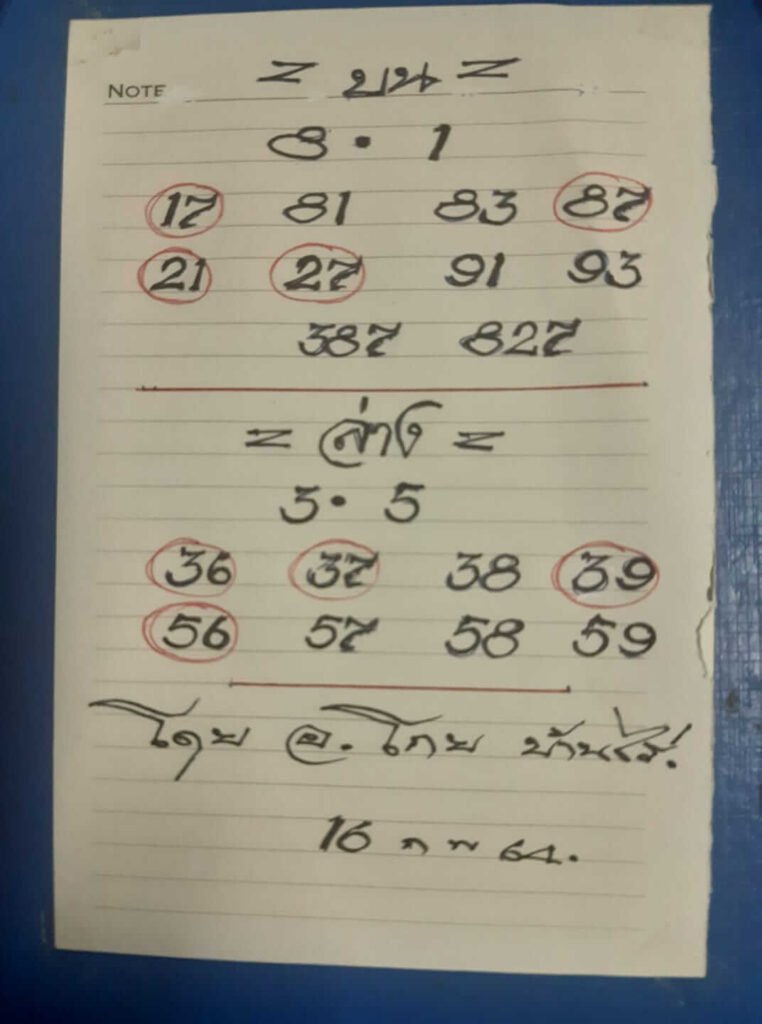 NOTE
= บน =
8 · 1
17 81 83 87
21 27 91 93
387 827
= ล่าง =
3 · 5
36 37 38 39
56 57 58 59
โดย อ. โกย บ้านไร่.
16 ก พ 64.